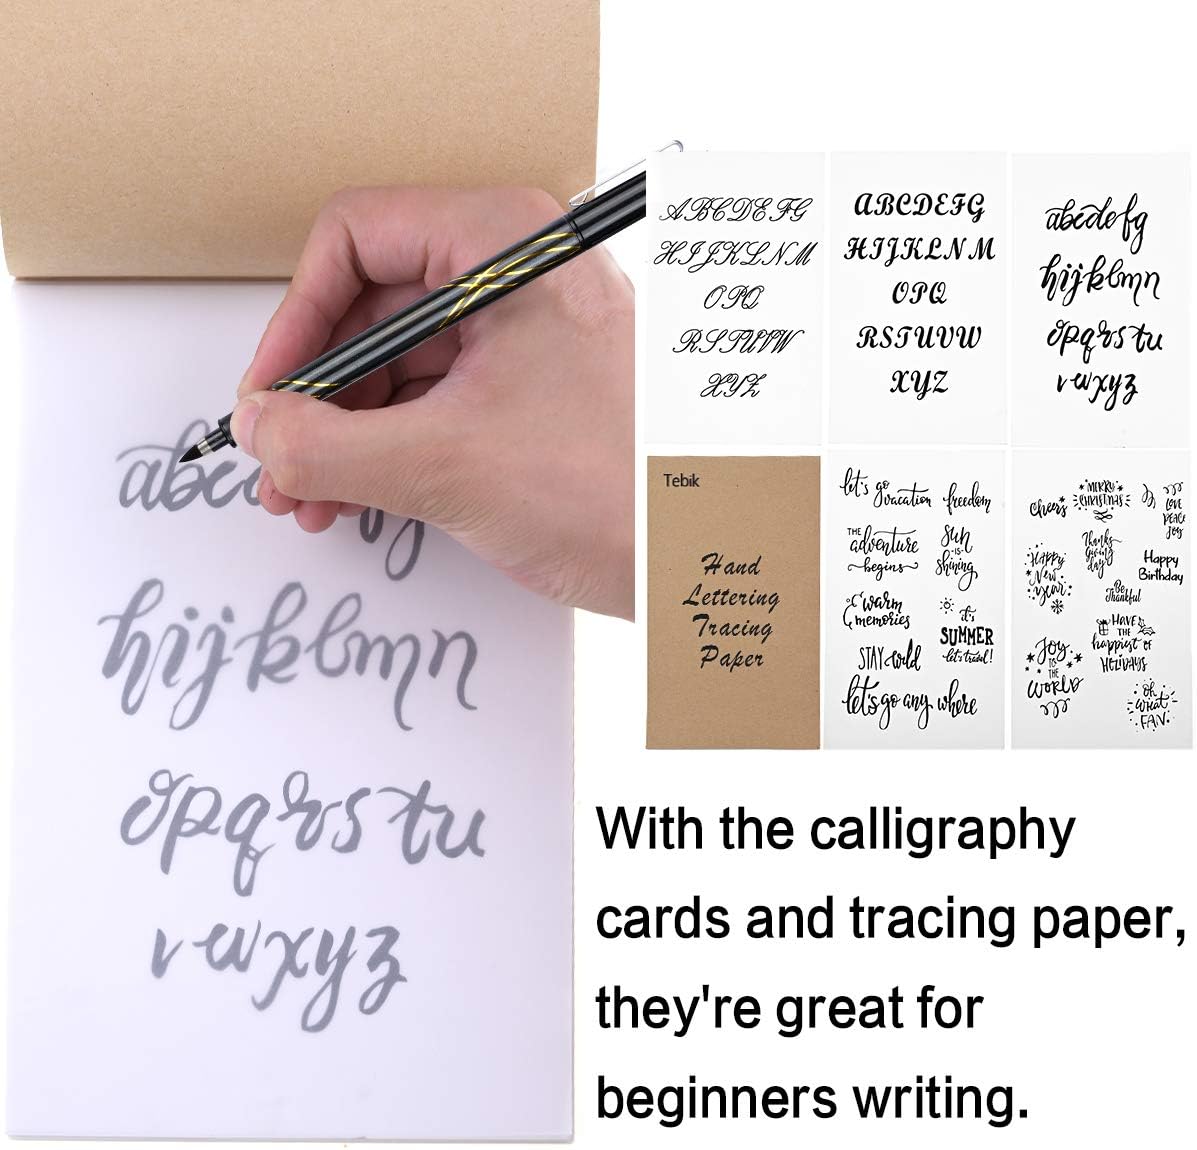 abcdefg
hijklmn
opqrstu
vwxyz
ABCDEFG
HIJKLNM
OPQ
RSTUVW
XYZ
ABCDEFG
HIJKLNM
OPQ
RSTUVW
XYZ
abcdefg
hijklmn
opqrstu
vwxyz
Tebik
Hand
Lettering
Tracing
Paper
let's go
vacation
freedom
THE
adventure
begins
Sun
IS
shining
warm
memories
it's
SUMMER
let's travel!
STAY wild
let's go any where
cheers
MERRY
CHRISTMAS
LOVE
PEACE
JOY
HAPPY
New
YEAR
Thanks
giving
day
Happy
Birthday
Be
Thankful
HAVE
THE
happiest OF
HOLIDAYS
JOY
IS
THE
WORLD
oh
what
FAN.
With the calligraphy
cards and tracing paper,
they're great for
beginners writing.